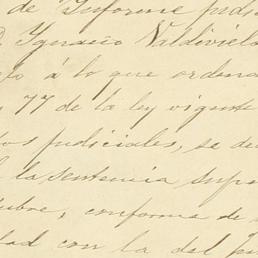 de Informe pedi
D. Ygnacio Valdiviels
glo á lo que ordena
77 de la ley vigente
tos judiciales, se de
la sentencia supe
ubre, conforme de
dad con la del